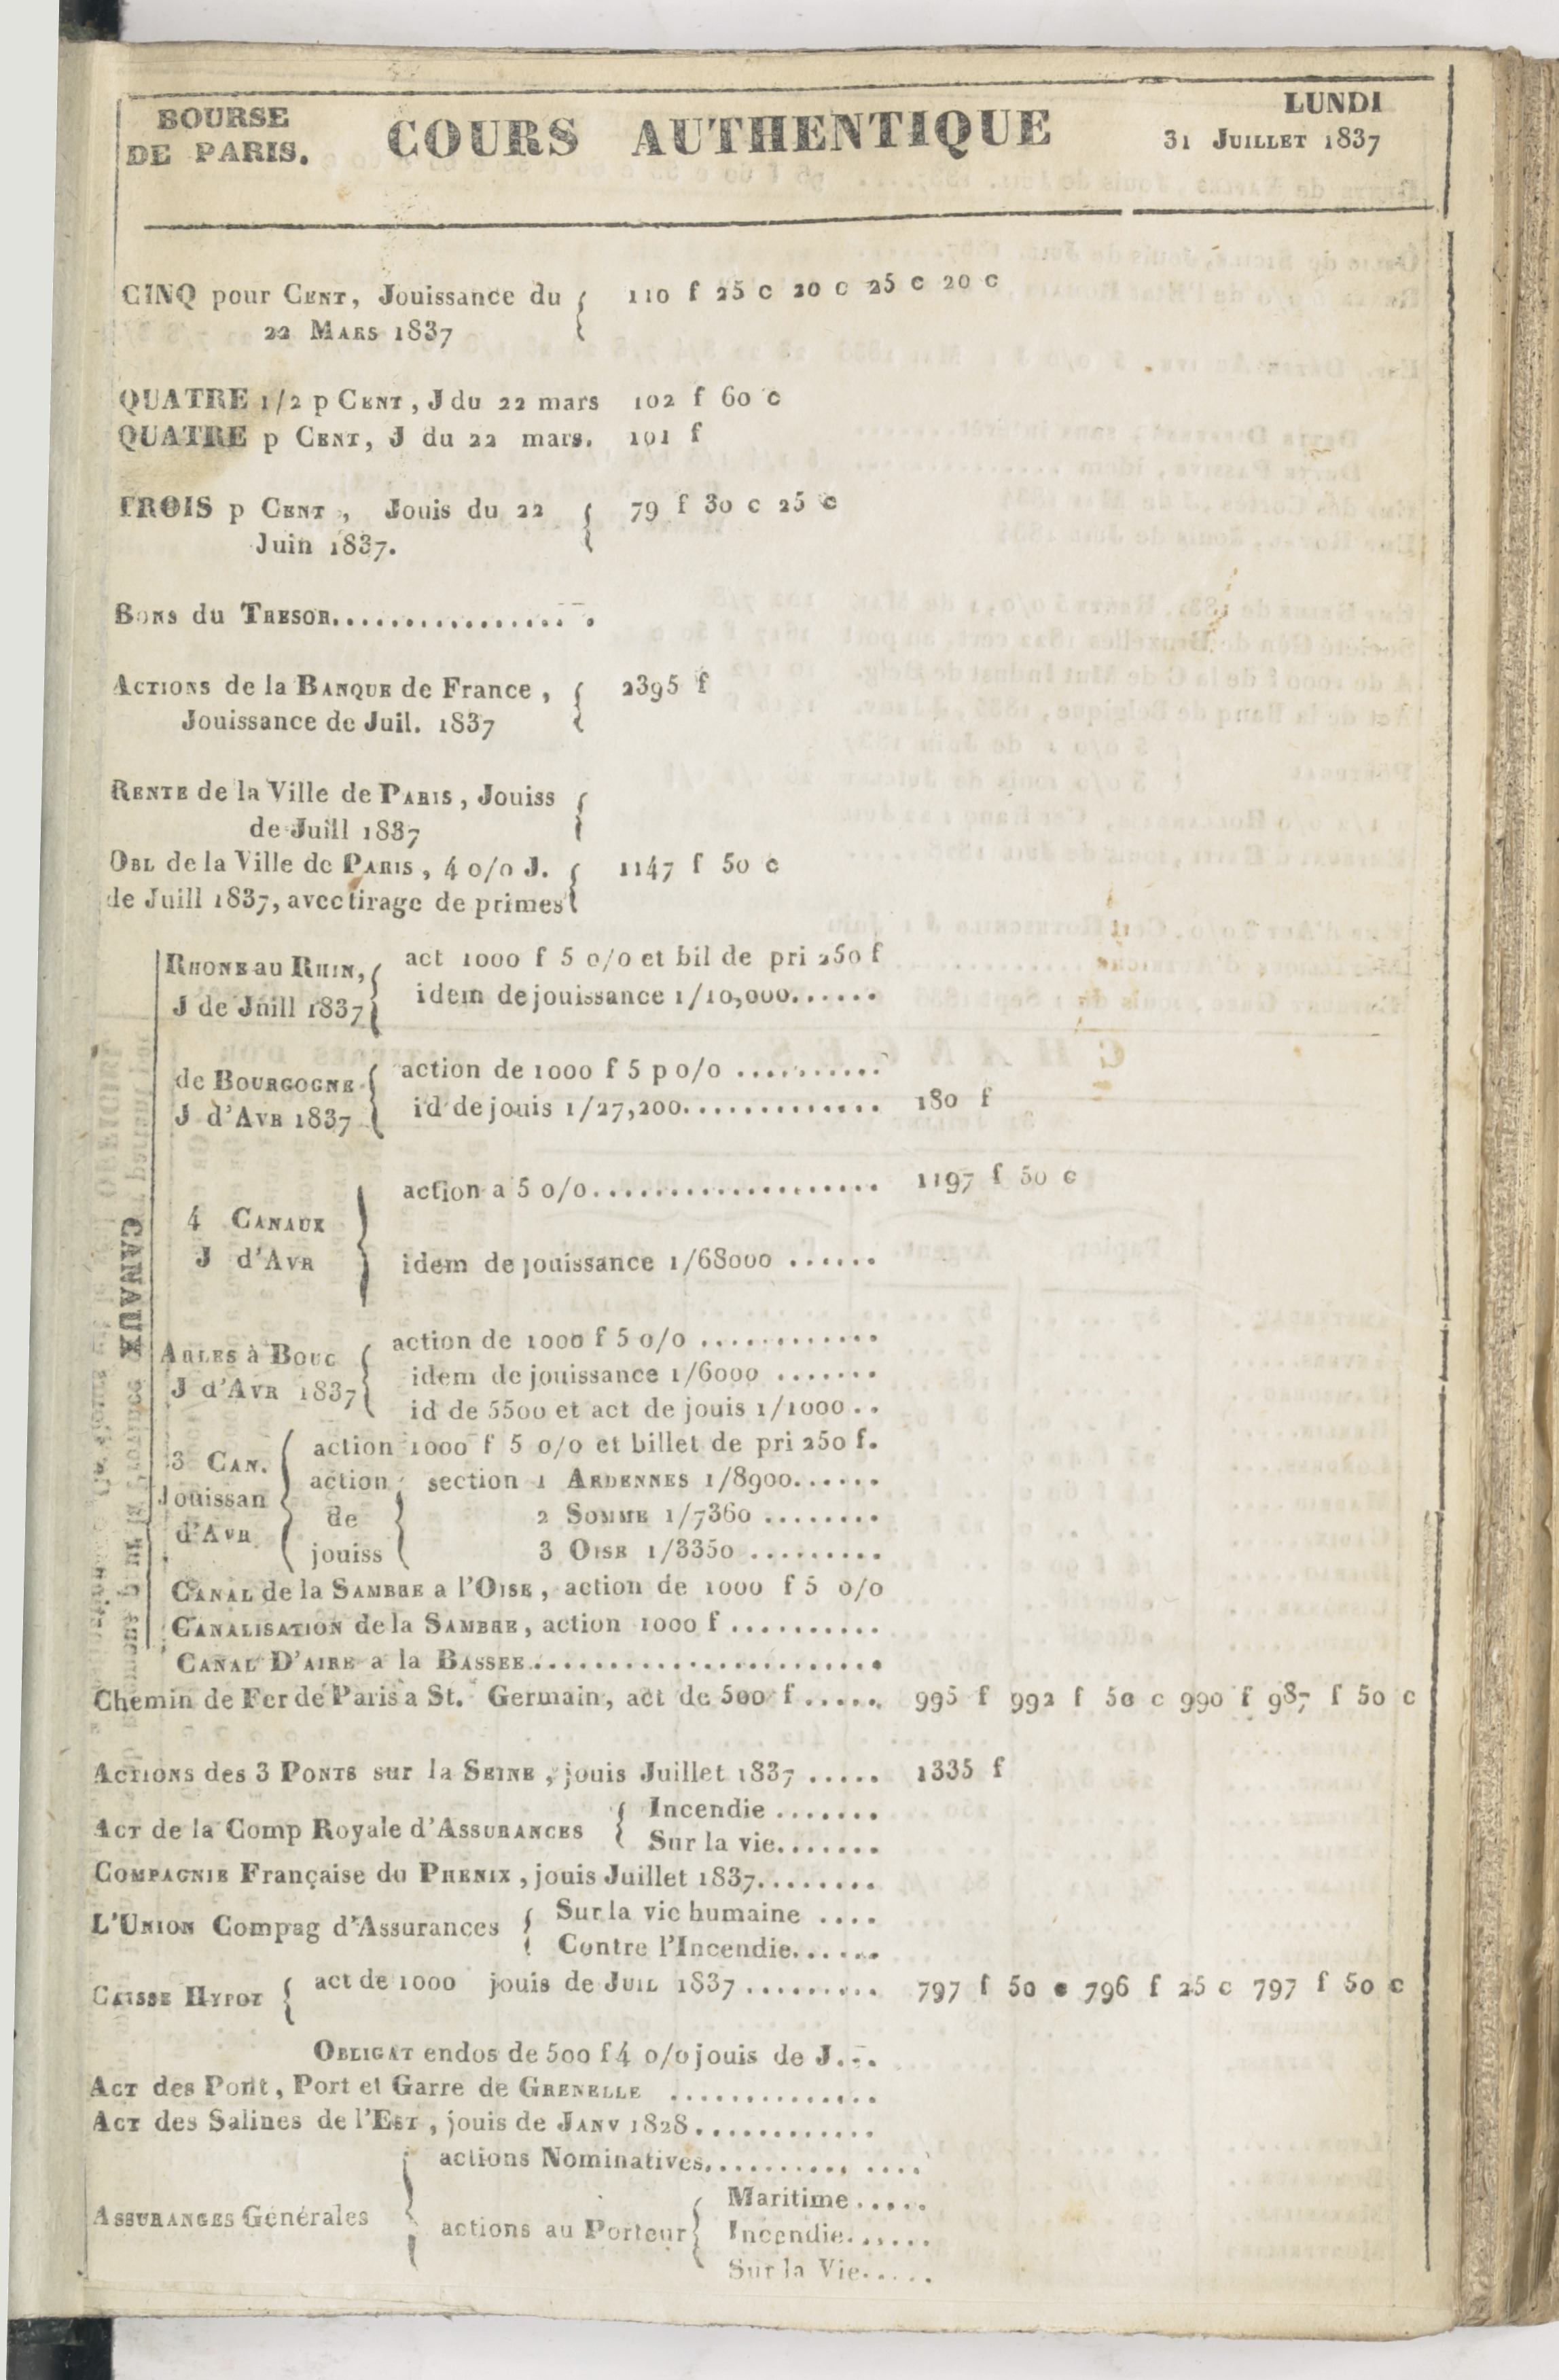 BOURSE
DE PARIS.
COURS AUTHENTIQUE
LUNDI
31 JUILLET 1837
CINQ pour CENT, Jouissance du { 110 f 25 c 20 c 25 c 20 c
22 MARS 1837
QUATRE 1/2 p CENT, J du 22 mars 102 f 60 c
QUATRE p CENT, J du 22 mars. 101 f
TROIS p CENT, Jouis du 22 { 79 f 30 c 25 c
Juin 1837.
BONS du TRESOR..................
ACTIONS de la BANQUE de France, { 2395 f
Jouissance de Juil. 1837
RENTE de la Ville de PARIS, Jouiss {
de Juill 1837
OBL de la Ville de PARIS, 4 o/o J. { 1147 f 50 c
de Juill 1837, avec tirage de primes
CANAUX
RHONE au RHIN, { act 1000 f 5 o/o et bil de pri 250 f
J de Jnill 1837 idem de jouissance 1/10,000......
de BOURGOGNE { action de 1000 f 5 p o/o ..........
J d'AVR 1837 id de jouis 1/27,200............. 180 f
action a 5 o/o................... 1197 f 50 c
4 CANAUX
J d'AVR
idem de jouissance 1/68000 ......
ARLES à BOUC { action de 1000 f 5 o/o ............
J d'AVR 1837 idem de jouissance 1/6000 .......
id de 5500 et act de jouis 1/1000..
3 CAN. { action 1000 f 5 o/o et billet de pri 250 f.
Jouissan action { section 1 ARDENNES 1/8900......
d'AVR de 2 SOMME 1/7360 ........
jouiss 3 OISE 1/3350 .........
CANAL de la SAMBRE a l'OISE, action de 1000 f 5 o/o
CANALISATION de la SAMBRE, action 1000 f ..........
CANAL D'AIRE a la BASSEE.......................
Chemin de Fer de Paris a St. Germain, act de 500 f ..... 995 f 992 f 50 c 990 f 987 f 50 c
ACTIONS des 3 PONTS sur la SEINE, jouis Juillet 1837 ..... 1335 f
ACT de la Comp Royale d'ASSURANCES { Incendie .......
Sur la vie.......
COMPAGNIE Française du PHENIX, jouis Juillet 1837........
L'UNION Compag d'Assurances { Sur la vie humaine ....
Contre l'Incendie......
CAISSE HYPOT { act de 1000 jouis de JUIL 1837 ......... 797 f 50 c 796 f 25 c 797 f 50 c
OBLIGAT endos de 500 f 4 o/o jouis de J...
ACT des Pont, Port et Garre de GRENELLE ..............
ACT des Salines de l'EST, jouis de JANV 1828............
actions Nominatives.......... ....
ASSURANCES Générales { actions au Porteur { Maritime .....
Incendie......
Sur la Vie.....